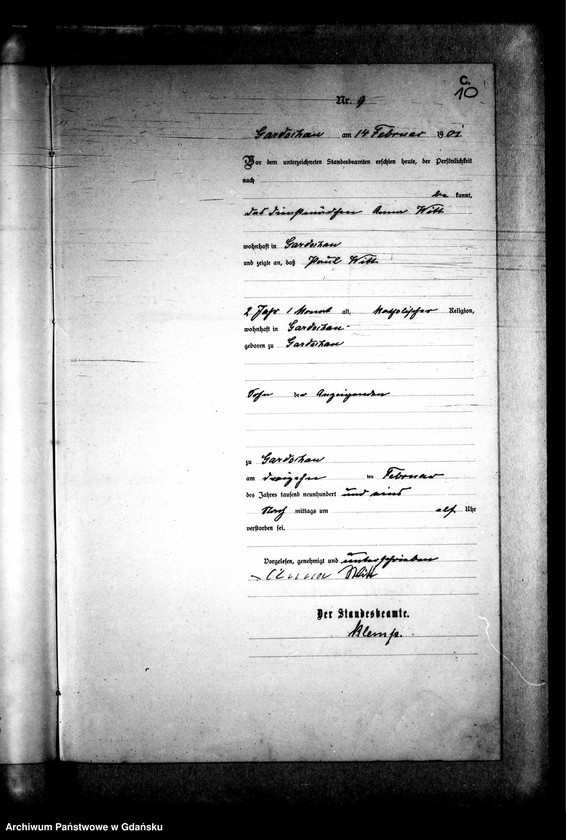 C.
10
Nr. 9
Gardschau am 14 Februar 1901
Vor dem unterzeichneten Standesbeamten erschien heute, der Persönlichkeit
nach
be kannt,
das Dienstmädchen Anna Witt
wohnhaft in Gardschau
und zeigte an, daß Paul Witt
2 Jahr 1 Monat alt, katholischer Religion,
wohnhaft in Gardschau
geboren zu Gardschau
Sohn der Anzeigenden
zu Gardschau
am dreizehn ten Februar
des Jahres tausend neunhundert und eins
Nach mittags um elf Uhr
verstorben sei.
Vorgelesen, genehmigt und unterschrieben
Anna Witt
Der Standesbeamte.
Archiwum Państwowe w Gdańsku